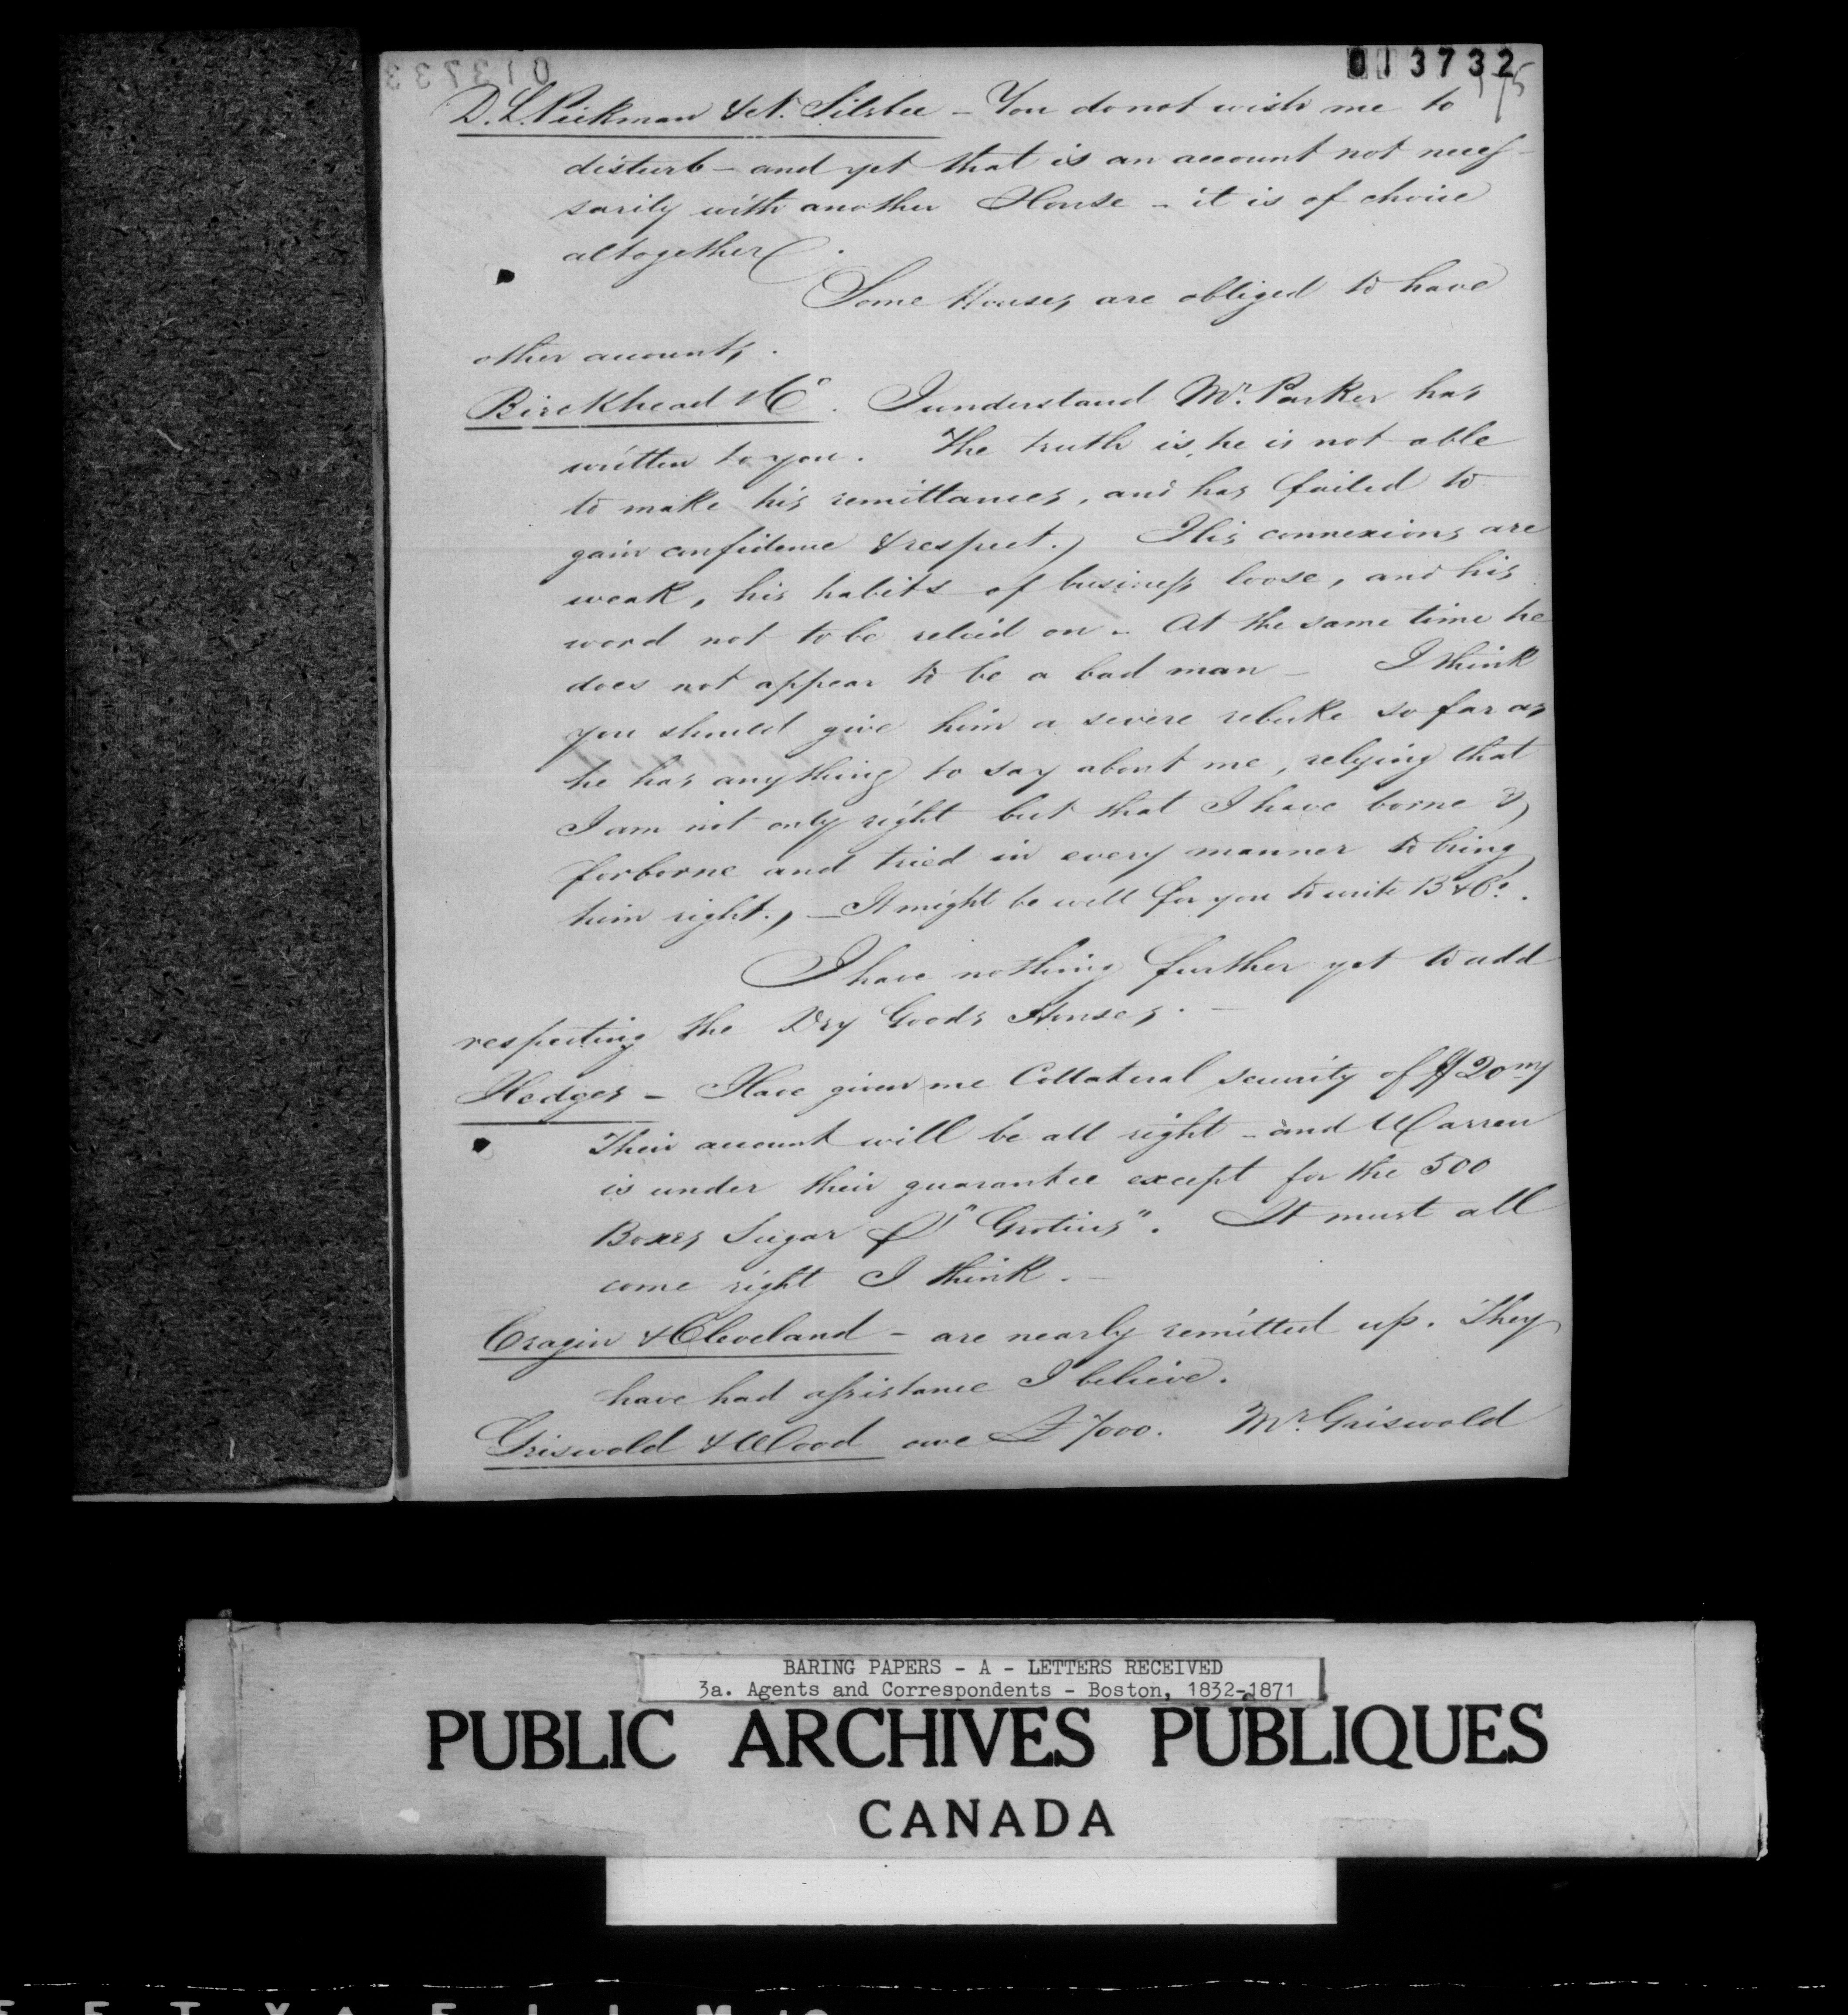 013732
175
D. L. Pickman & N. Silsbee - You do not wish me to
disturb - and yet that is an account not neces-
sarily with another House - it is of choice
altogether.
Some Houses are obliged to have
other accounts.
Birckhead & Co. I understand Mr. Parker has
written to you. The truth is, he is not able
to make his remittances, and has failed to
gain confidence & respect. His connexions are
weak, his habits of business loose, and his
word not to be relied on - At the same time he
does not appear to be a bad man - I think
you should give him a severe rebuke so far as
he has anything to say about me, relying that
I am not only right but that I have borne &
forborne and tried in every manner to bring
him right. - It might be well for you to write B & Co.
I have nothing further yet to add
respecting the Dry Goods Houses. -
Hedges - Have given me Collateral security of $20m
Their account will be all right - and Warren
is under their guarantee except for the 500
Boxes Sugar p "Grotius". It must all
come right I think. -
Cragin & Cleveland - are nearly remitted up. They
have had assistance I believe.
Griswold & Wood owe £7000. Mr. Griswold
BARING PAPERS - A - LETTERS RECEIVED
3a. Agents and Correspondents - Boston, 1832-1871
PUBLIC ARCHIVES PUBLIQUES
CANADA